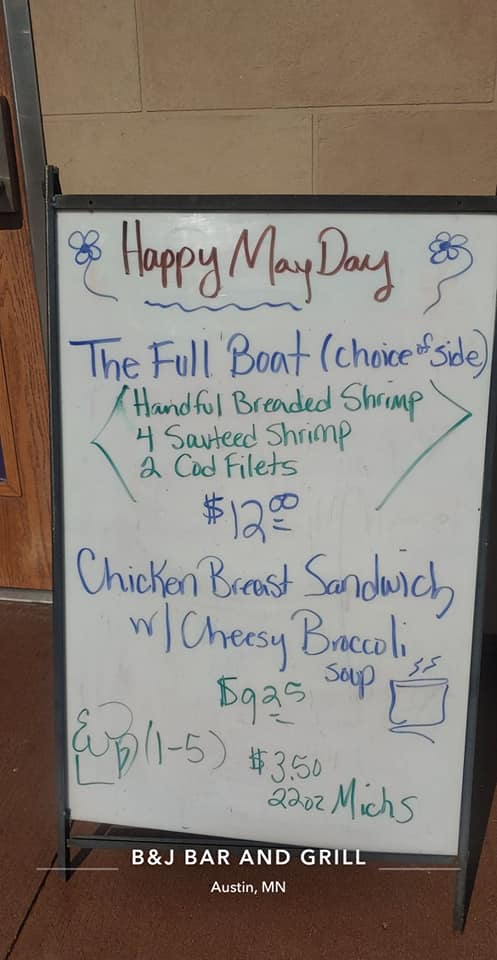 Happy May Day
The Full Boat (choice of side)
Handful Breaded Shrimp
4 Sauteed Shrimp
2 Cod Filets
$12 00
Chicken Breast Sandwich
w/ Cheesy Broccoli
soup
$9 25
(1-5) $3.50
22oz Michs
B&J BAR AND GRILL
Austin, MN